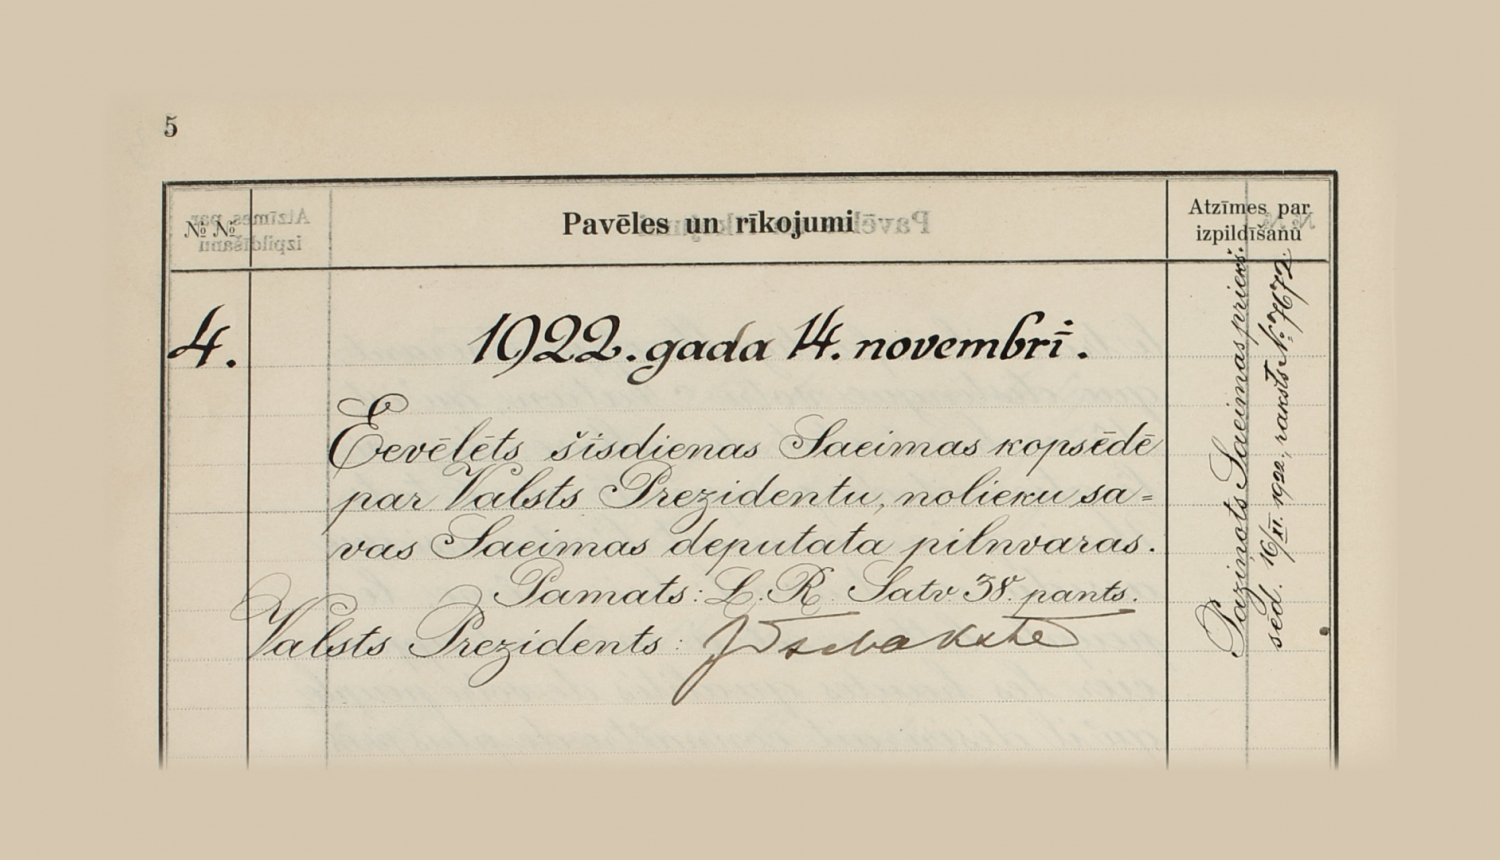 5
№ №
Pavēles un rīkojumi
Atzīmes par
izpildīšanu
4.
1922. gada 14. novembrī.
Eevēlēts šisdienas Saeimas kopsēdē
par Valsts Prezidentu, nolieku sa=
vas Saeimas deputata pilnvaras.
Pamats: L. R. Satv 38. pants.
Valsts Prezidents: JTschakste
Paziņots Saeimas priekš.
sēd. 16/XI 1922., raksts №: 7672